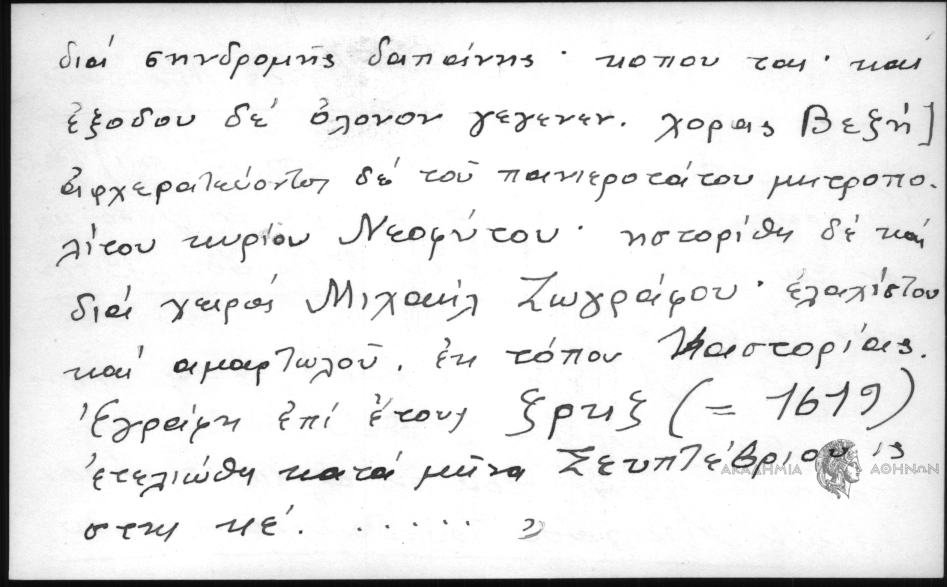 διά σηνδρομῆς δαπάνης · κοπου ται · και
ἐξοδου δέ ὁλονον γεγενεν. χορας Βεζή]
ἀρχιερατεύοντος δέ τοῦ πανιεροτάτου μητροπο-
λίτου κυρίου Νεοφύτου · ηστορίθη δέ καί
διά χειρός Μιχαήλ Ζωγράφου · ἐλαχίστου
καί αμαρτωλοῦ. ἐκ τόπου Καστορίας.
Ἐγράφη ἐπί ἔτους ξρκξ (= 1619)
ἐτελιώθη κατά μῆνα Σευπτέβριου ἰς
στην κέ. . . . . . . »
ΑΚΑΔΗΜΙΑ ΑΘΗΝΩΝ